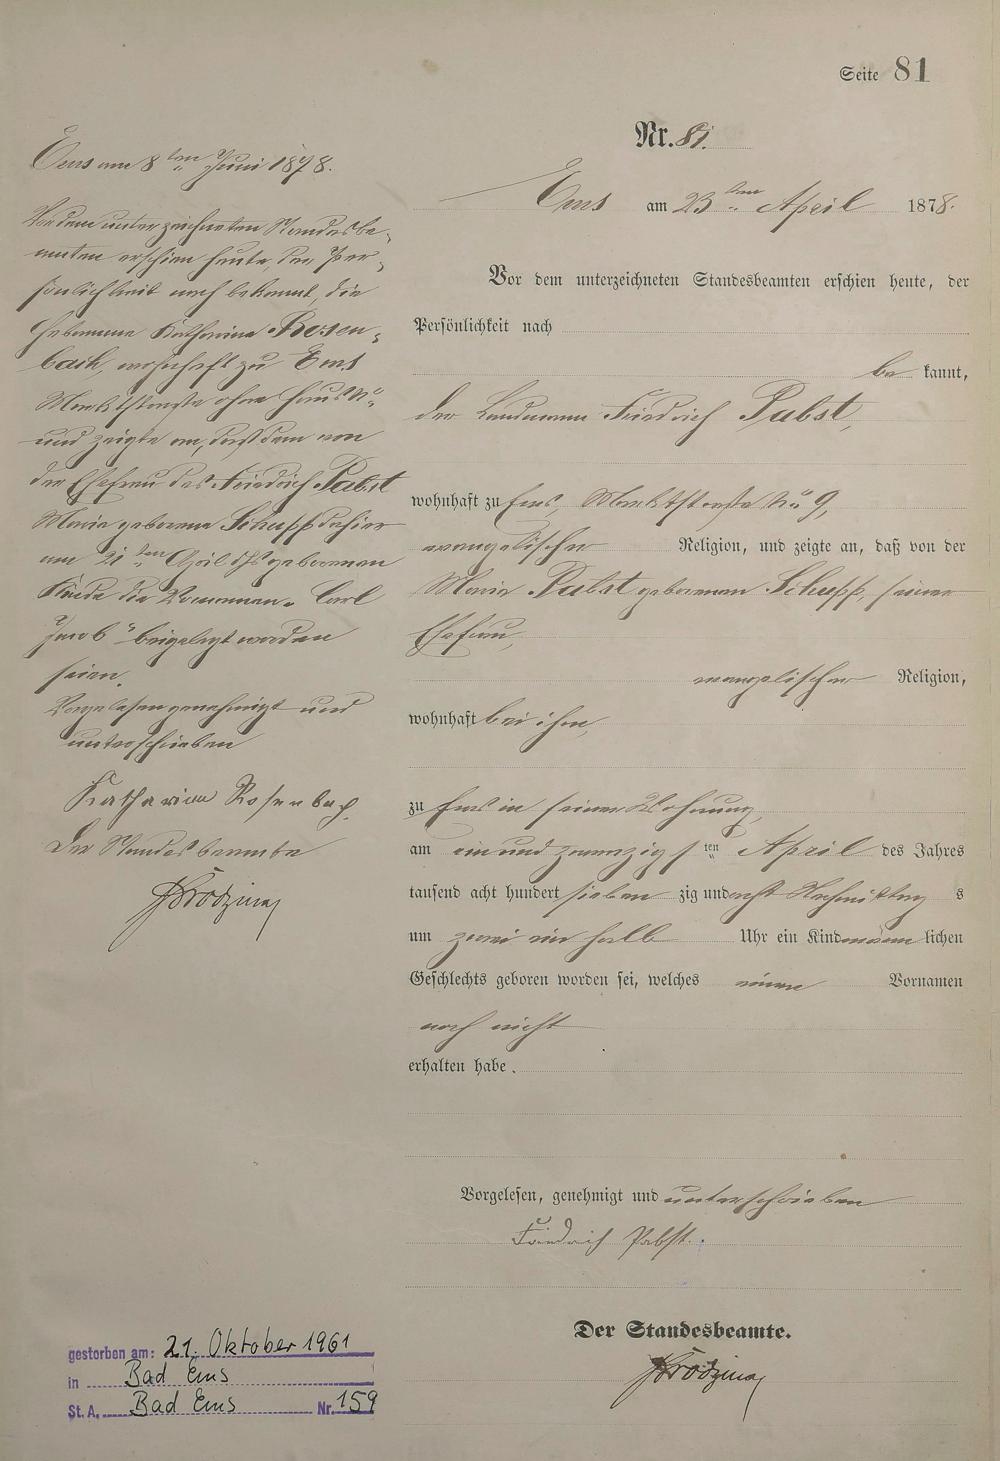 Seite 81
Nr. 81.
Ems am 23ten April 1878.
Vor dem unterzeichneten Standesbeamten erschien heute, der
Persönlichkeit nach
be kannt,
der Landmann Friedrich Pabst,
wohnhaft zu Ems, Marktstraße No 9,
evangelischer Religion, und zeigte an, daß von der
Marie Pabst geborenen Schupp, seiner
Ehefrau,
evangelischer Religion,
wohnhaft bei ihm,
zu Ems in seiner Wohnung,
am ein und zwanzigsten April des Jahres
tausend acht hundert sieben zig und acht Nachmittag s
um zwei ein halb Uhr ein Kind männ lichen
Geschlechts geboren worden sei, welches einen Vornamen
noch nicht
erhalten habe.
Vorgelesen, genehmigt und unterschrieben
Friedrich Pabst.
Der Standesbeamte.
Ems am 8ten Juni 1878.
Vor dem unterzeichneten Standesbe-
amten erschien heute, der Per-
sönlichkeit nach bekannt, die
Hebamme Katharina Rosen-
bach, wohnhaft zu Ems
Marktstraße ohne Haus No
und zeigte an, daß dem von
der Ehefrau des Friedrich Pabst
Marie geborene Schupp dahier
am 21ten April d Js geborenen
Kinde die Vornamen „Carl
Jacob" beigelegt worden
seien.
Vorgelesen genehmigt und
unterschrieben
Katharina Rosenbach.
Der Standesbeamte
gestorben am: 21. Oktober 1961
in Bad Ems
St. A. Bad Ems Nr. 159